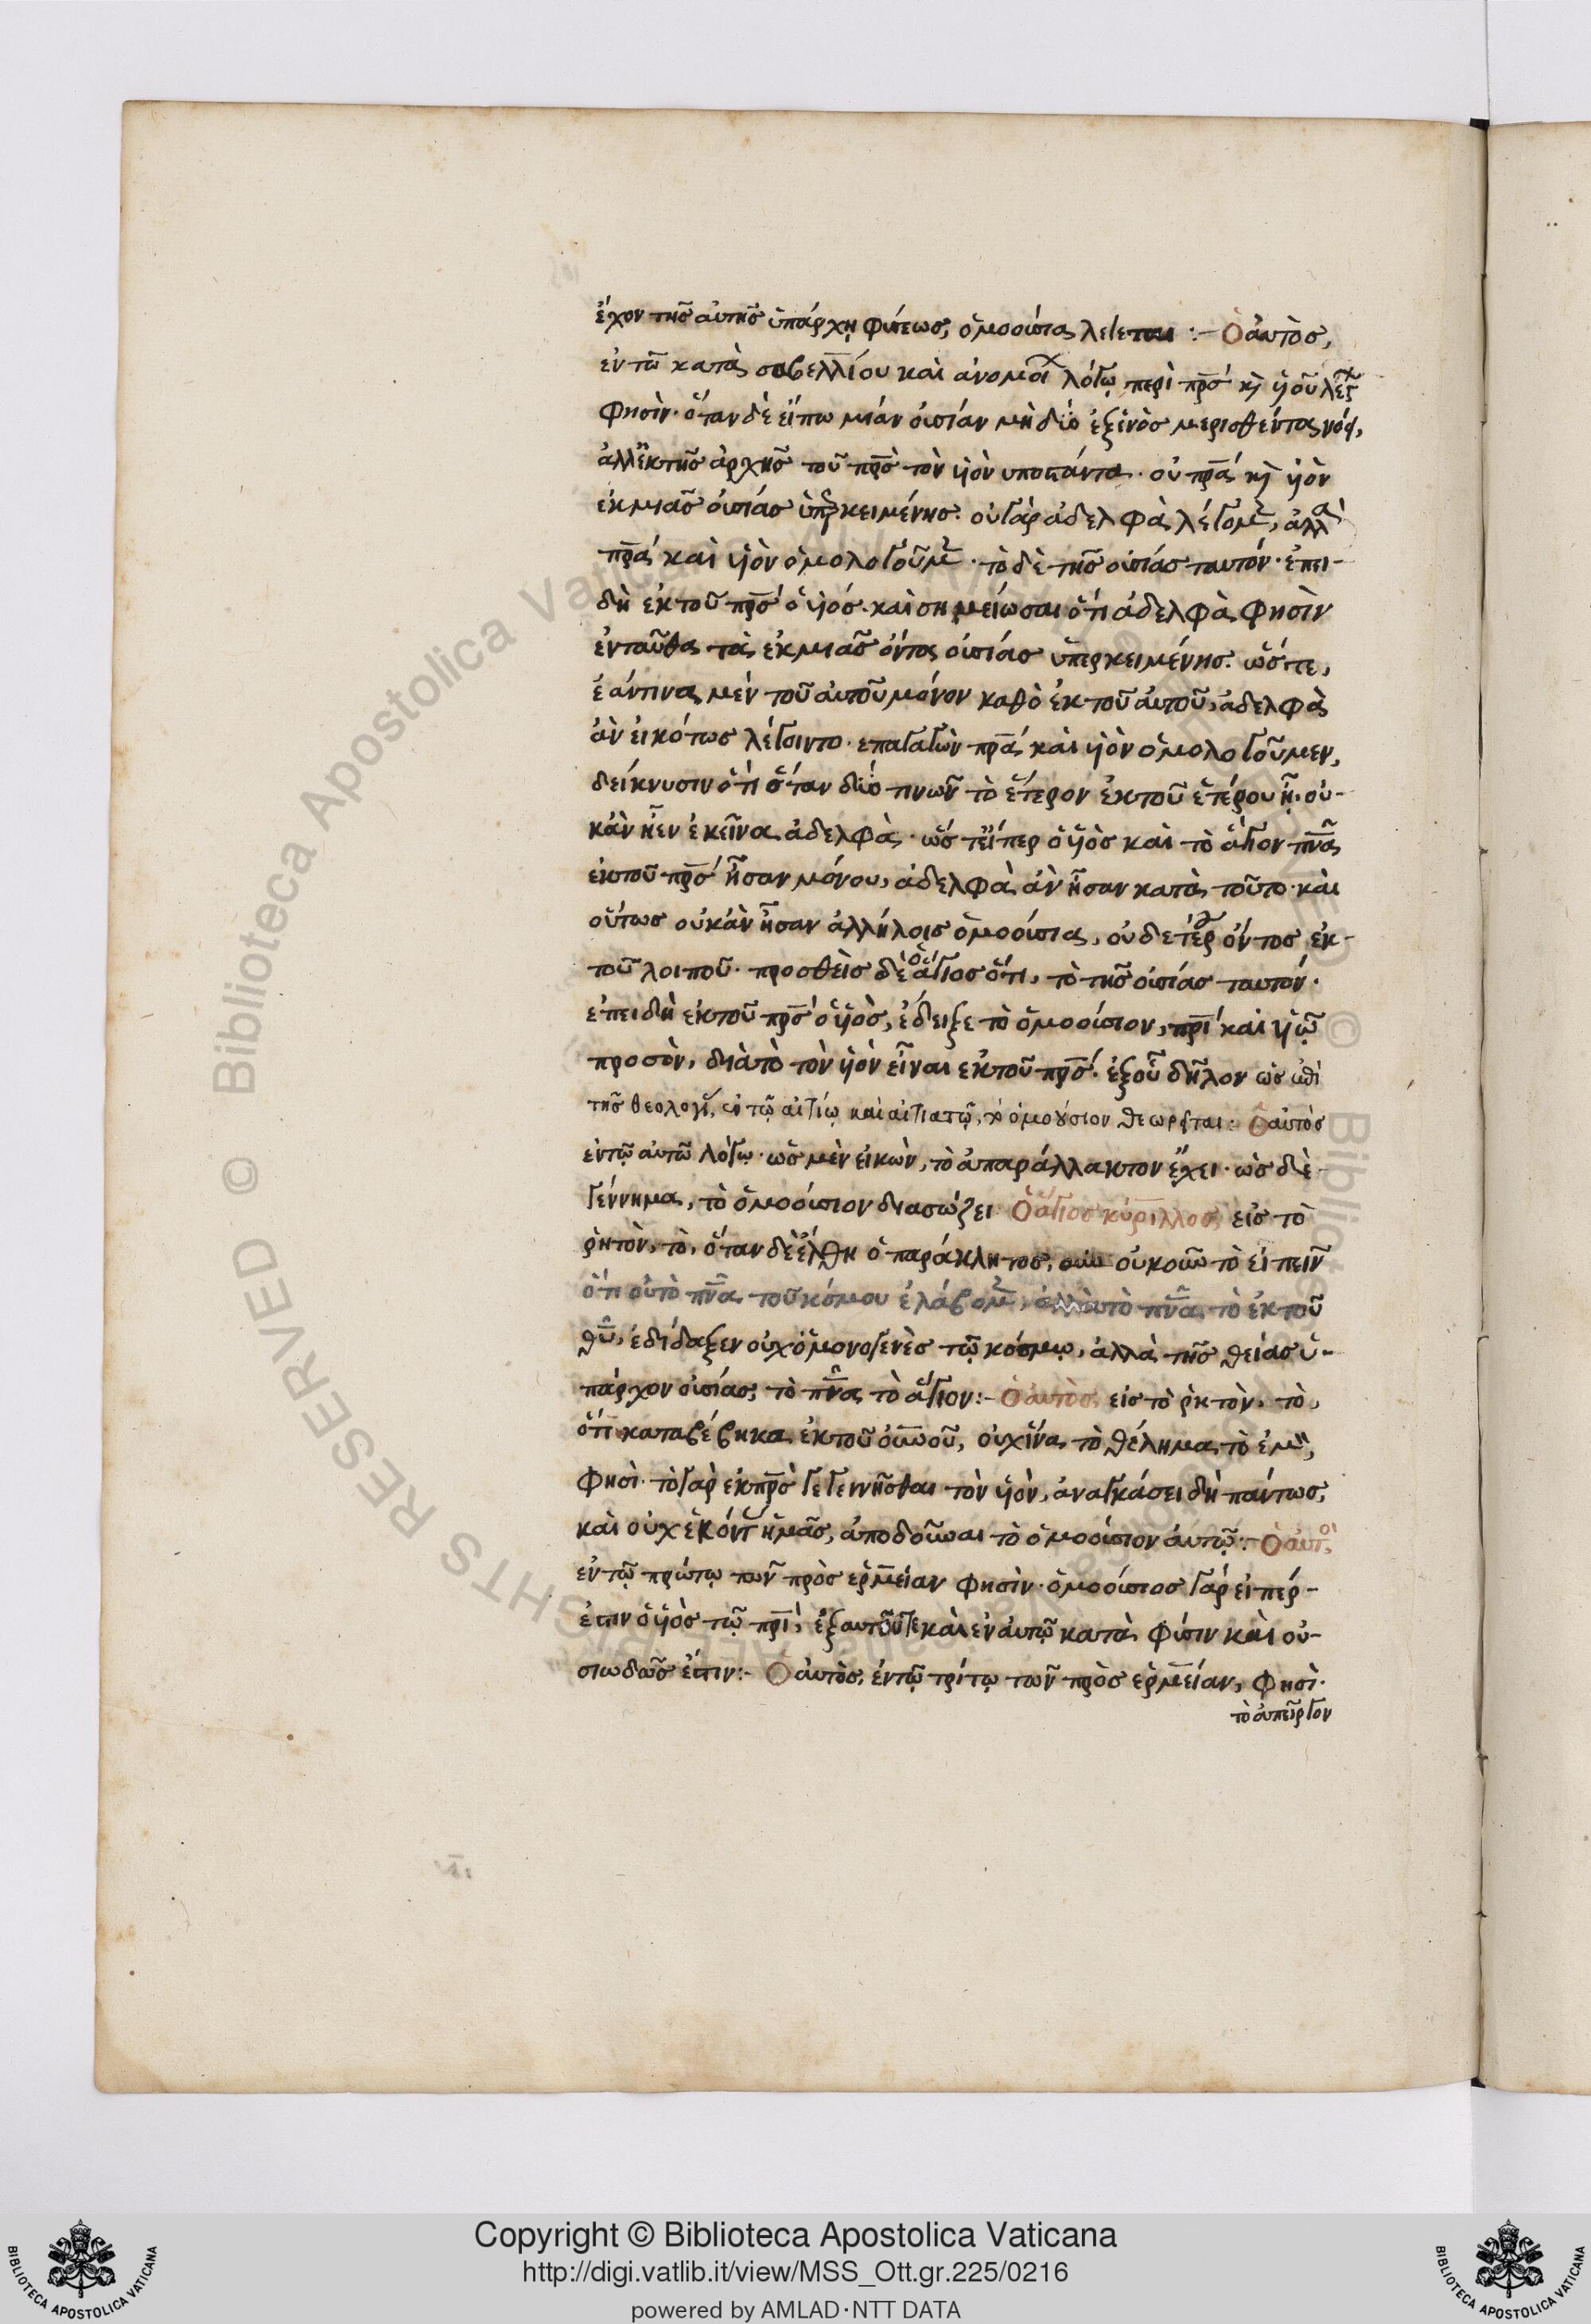 ἔχον τῆς αὐτῆς ὑπάρχῃ φύσεως, ὁμοούσια λέγεται :- Ὁ αὐτὸς,
ἐν τῶ κατὰ σαβελλίου καὶ ἀνομοί λόγῳ, περὶ πρς κὶ ὑοῦ λέγ
φησὶν· ὅταν δὲ εἴπω μίαν οὐσίαν μὴ δύο ἐξ ἑνὸς μερισθέντα νόει,
ἀλλ' ἐκ τῆς ἀρχῆς τοῦ πρς τὸν ὑὸν ὑποστάντα. οὐ πρα κὶ ὑὸν
ἐκ μιᾶς οὐσίας ὑπερκειμένης. οὐ γὰρ ἀδελφὰ λέγομ, ἀλλὰ
πρα καὶ ὑὸν ὁμολογοῦμ. τὸ δὲ τῆς οὐσίας ταυτόν. ἐπει-
δὴ ἐκ τοῦ πρς ὁ ὑός. καὶ σημείωσαι ὅτι ἀδελφὰ φησὶν
ἐνταῦθα τὰ ἐκ μιᾶς ὄντα οὐσίας ὑπερκειμένης. ὥστε,
ἐάν τινα μὲν τοῦ αὐτοῦ μόνον καθὸ ἐκ τοῦ αὐτοῦ, ἀδελφὰ
ἂν εἰκότως λέγοιντο. ἐπαγαγὼν πρα καὶ ὑὸν ὁμολογοῦμεν,
δείκνυσιν ὅτι ὅταν δύο τινῶν τὸ ἕτερον ἐκ τοῦ ἑτέρου ᾖ. οὐ-
κἂν ἦεν ἐκεῖνα ἀδελφὰ. ὥστ' εἴπερ ὁ ὑὸς καὶ τὸ ἅγιον πνα
ἐκ τοῦ πρς ἦσαν μόνου, ἀδελφὰ ἂν ἦσαν κατὰ τοῦτο. καὶ
οὕτως οὐκ ἂν ἦσαν ἀλλήλοις ὁμοούσια, οὐδετέρ ὄντος ἐκ-
τοῦ λοιποῦ. προσθεὶς δὲ ὁ ἅγιος ὅτι, τὸ τῆς οὐσίας ταυτόν.
ἐπειδὴ ἐκ τοῦ πρς ὁ ὑὸς, ἔδειξε τὸ ὁμοούσιον, πρι καὶ ὑῷ
προσὸν, διὰ τὸ τὸν ὑὸν εἶναι ἐκ τοῦ πρς. ἐξ οὗ δῆλον ὡς ἐπὶ
τῆς θεολογί, ἐν τῷ αἰτίῳ καὶ αἰτιατῷ, τὸ ὁμοούσιον θεωρεῖται: Ὁ αὐτὸς
ἐν τῷ αὐτῶ λόγῳ. ὡς μὲν εἰκὼν, τὸ ἀπαράλλακτον ἔχει. ὡς δὲ
γέννημα, τὸ ὁμοούσιον διασώζει. Ὁ ἅγιος κύριλλος, εἰς τὸ
ῥητὸν, τὸ, ὅταν δὲ ἔλθη ὁ παράκλητος, οὐκοῦν τὸ εἰπεῖν
ὅτι οὐ τὸ πνα τοῦ κόσμου ἐλάβομ, ἀλλὰ τὸ πνα τὸ ἐκ τοῦ
θυ, ἐδίδαξεν οὐχ ὁμογενὲς τῷ κόσμῳ, ἀλλὰ τῆς θείας ὑ-
πάρχον οὐσίας, τὸ πνα τὸ ἅγιον :- Ὁ αὐτὸς, εἰς τὸ ῥητὸν, τὸ,
ὅτι καταβέβηκα ἐκ τοῦ οὐνοῦ, οὐχ ἵνα τὸ θέλημα τὸ ἐμὸν,
φησὶ. τὸ γὰρ ἐκ πρς γεγεννῆσθαι τὸν ὑὸν, ἀναγκάσει δὴ πάντως,
καὶ οὐχ ἑκόντ ἡμᾶς, ἀποδοῦναι τὸ ὁμοούσιον αὐτῷ :- Ὁ αὐτὸ,
ἐν τῷ πρώτῳ τῶν πρὸς ἑρμείαν φησὶν. ὁμοούσιος γὰρ εἰπέρ-
ἐστιν ὁ ὑὸς τῷ πρι, ἐξ αὐτοῦ τε καὶ ἐν αὐτῷ κατὰ φύσιν καὶ οὐ-
σιωδῶς ἐστιν :- Ὁ αὐτὸς, ἐν τῷ τρίτῳ τῶν πρὸς ἑρμείαν, φησὶ.
Copyright © Biblioteca Apostolica Vaticana
http://digi.vatlib.it/view/MSS_Ott.gr.225/0216
powered by AMLAD·NTT DATA